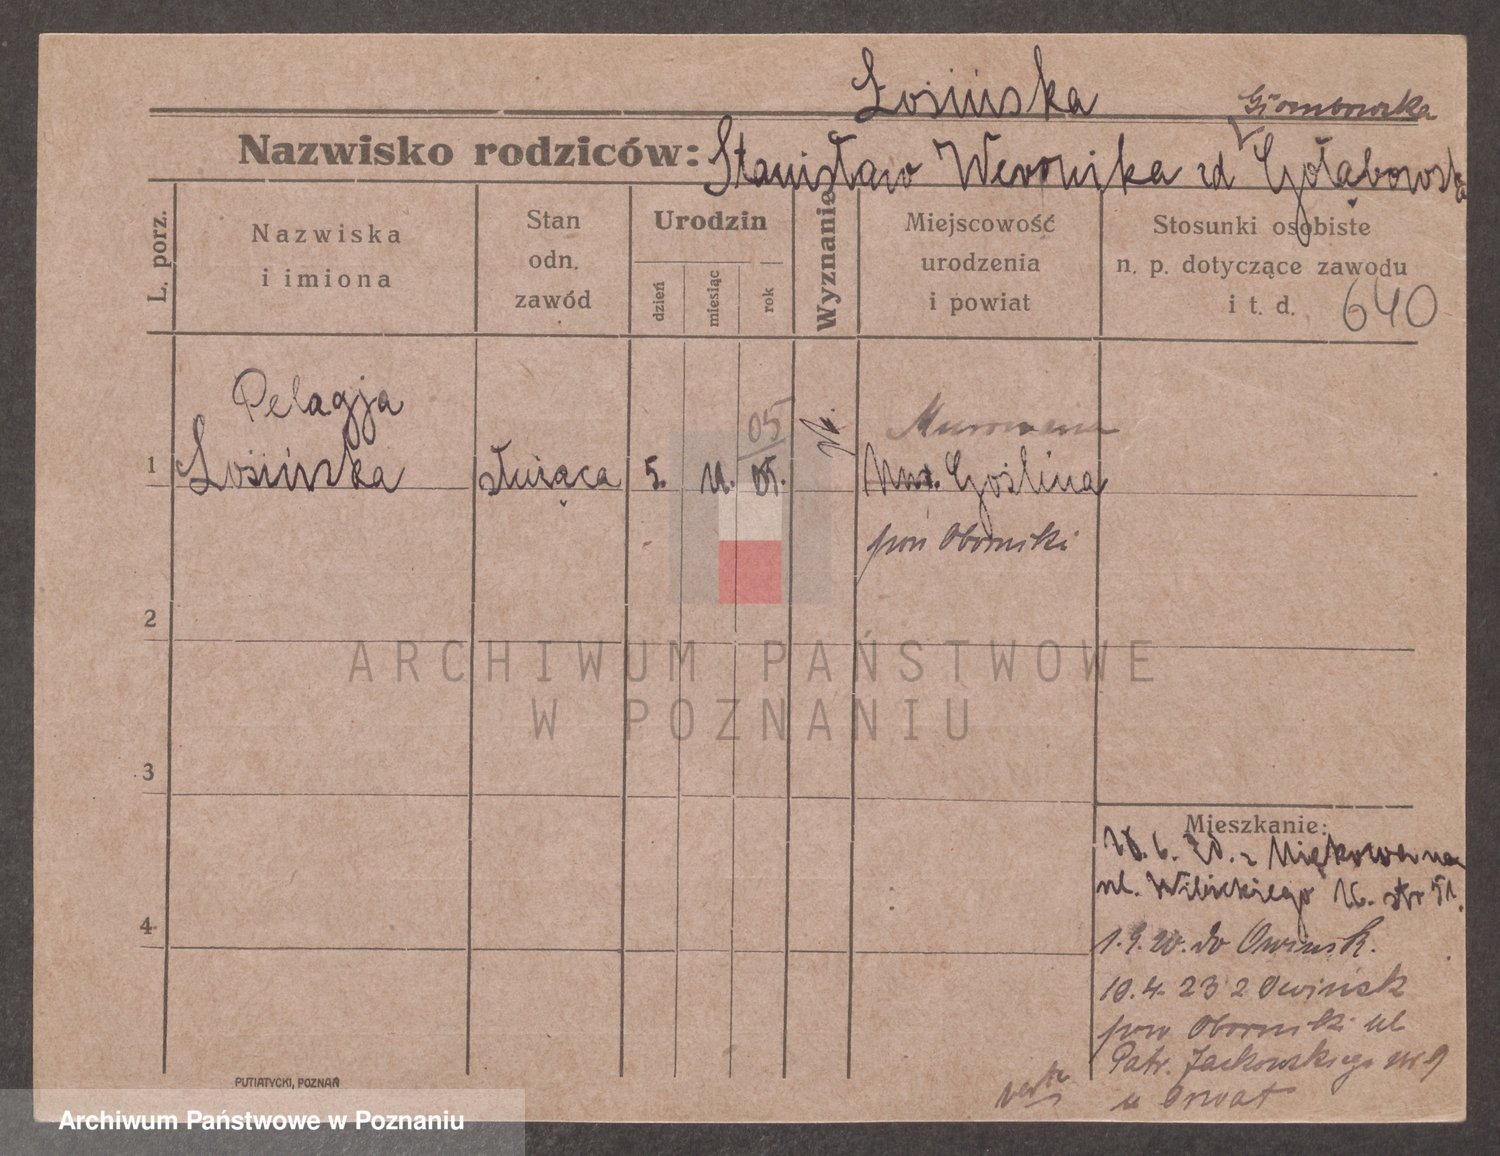 Łosińska
Głombowska
Nazwisko rodziców: Stanisław Weronika zd Gołąbowska
L. porz.
Nazwiska
i imiona
Stan
odn.
zawód
Urodzin
dzień
miesiąc
rok
Wyznanie
Miejscowość
urodzenia
i powiat
Stosunki osobiste
n. p. dotyczące zawodu
i t. d.
640
Pelagja
05
Murowana
1 Łosińska służąca 5. 11. 05. Mur. Goślina
pow Obornicki
2
3
4
Mieszkanie:
28. 6. 20. z Miękowa na
ul. Wibickiego 16. str 51.
1. 9. 20. do Owińsk.
10. 4. 23 z Owińsk
pow Obornicki ul
Patr. Jackowskiego nr 9
u Orwat
verte
PUTIATYCKI, POZNAŃ
ARCHIWUM PAŃSTWOWE
W POZNANIU
Archiwum Państwowe w Poznaniu